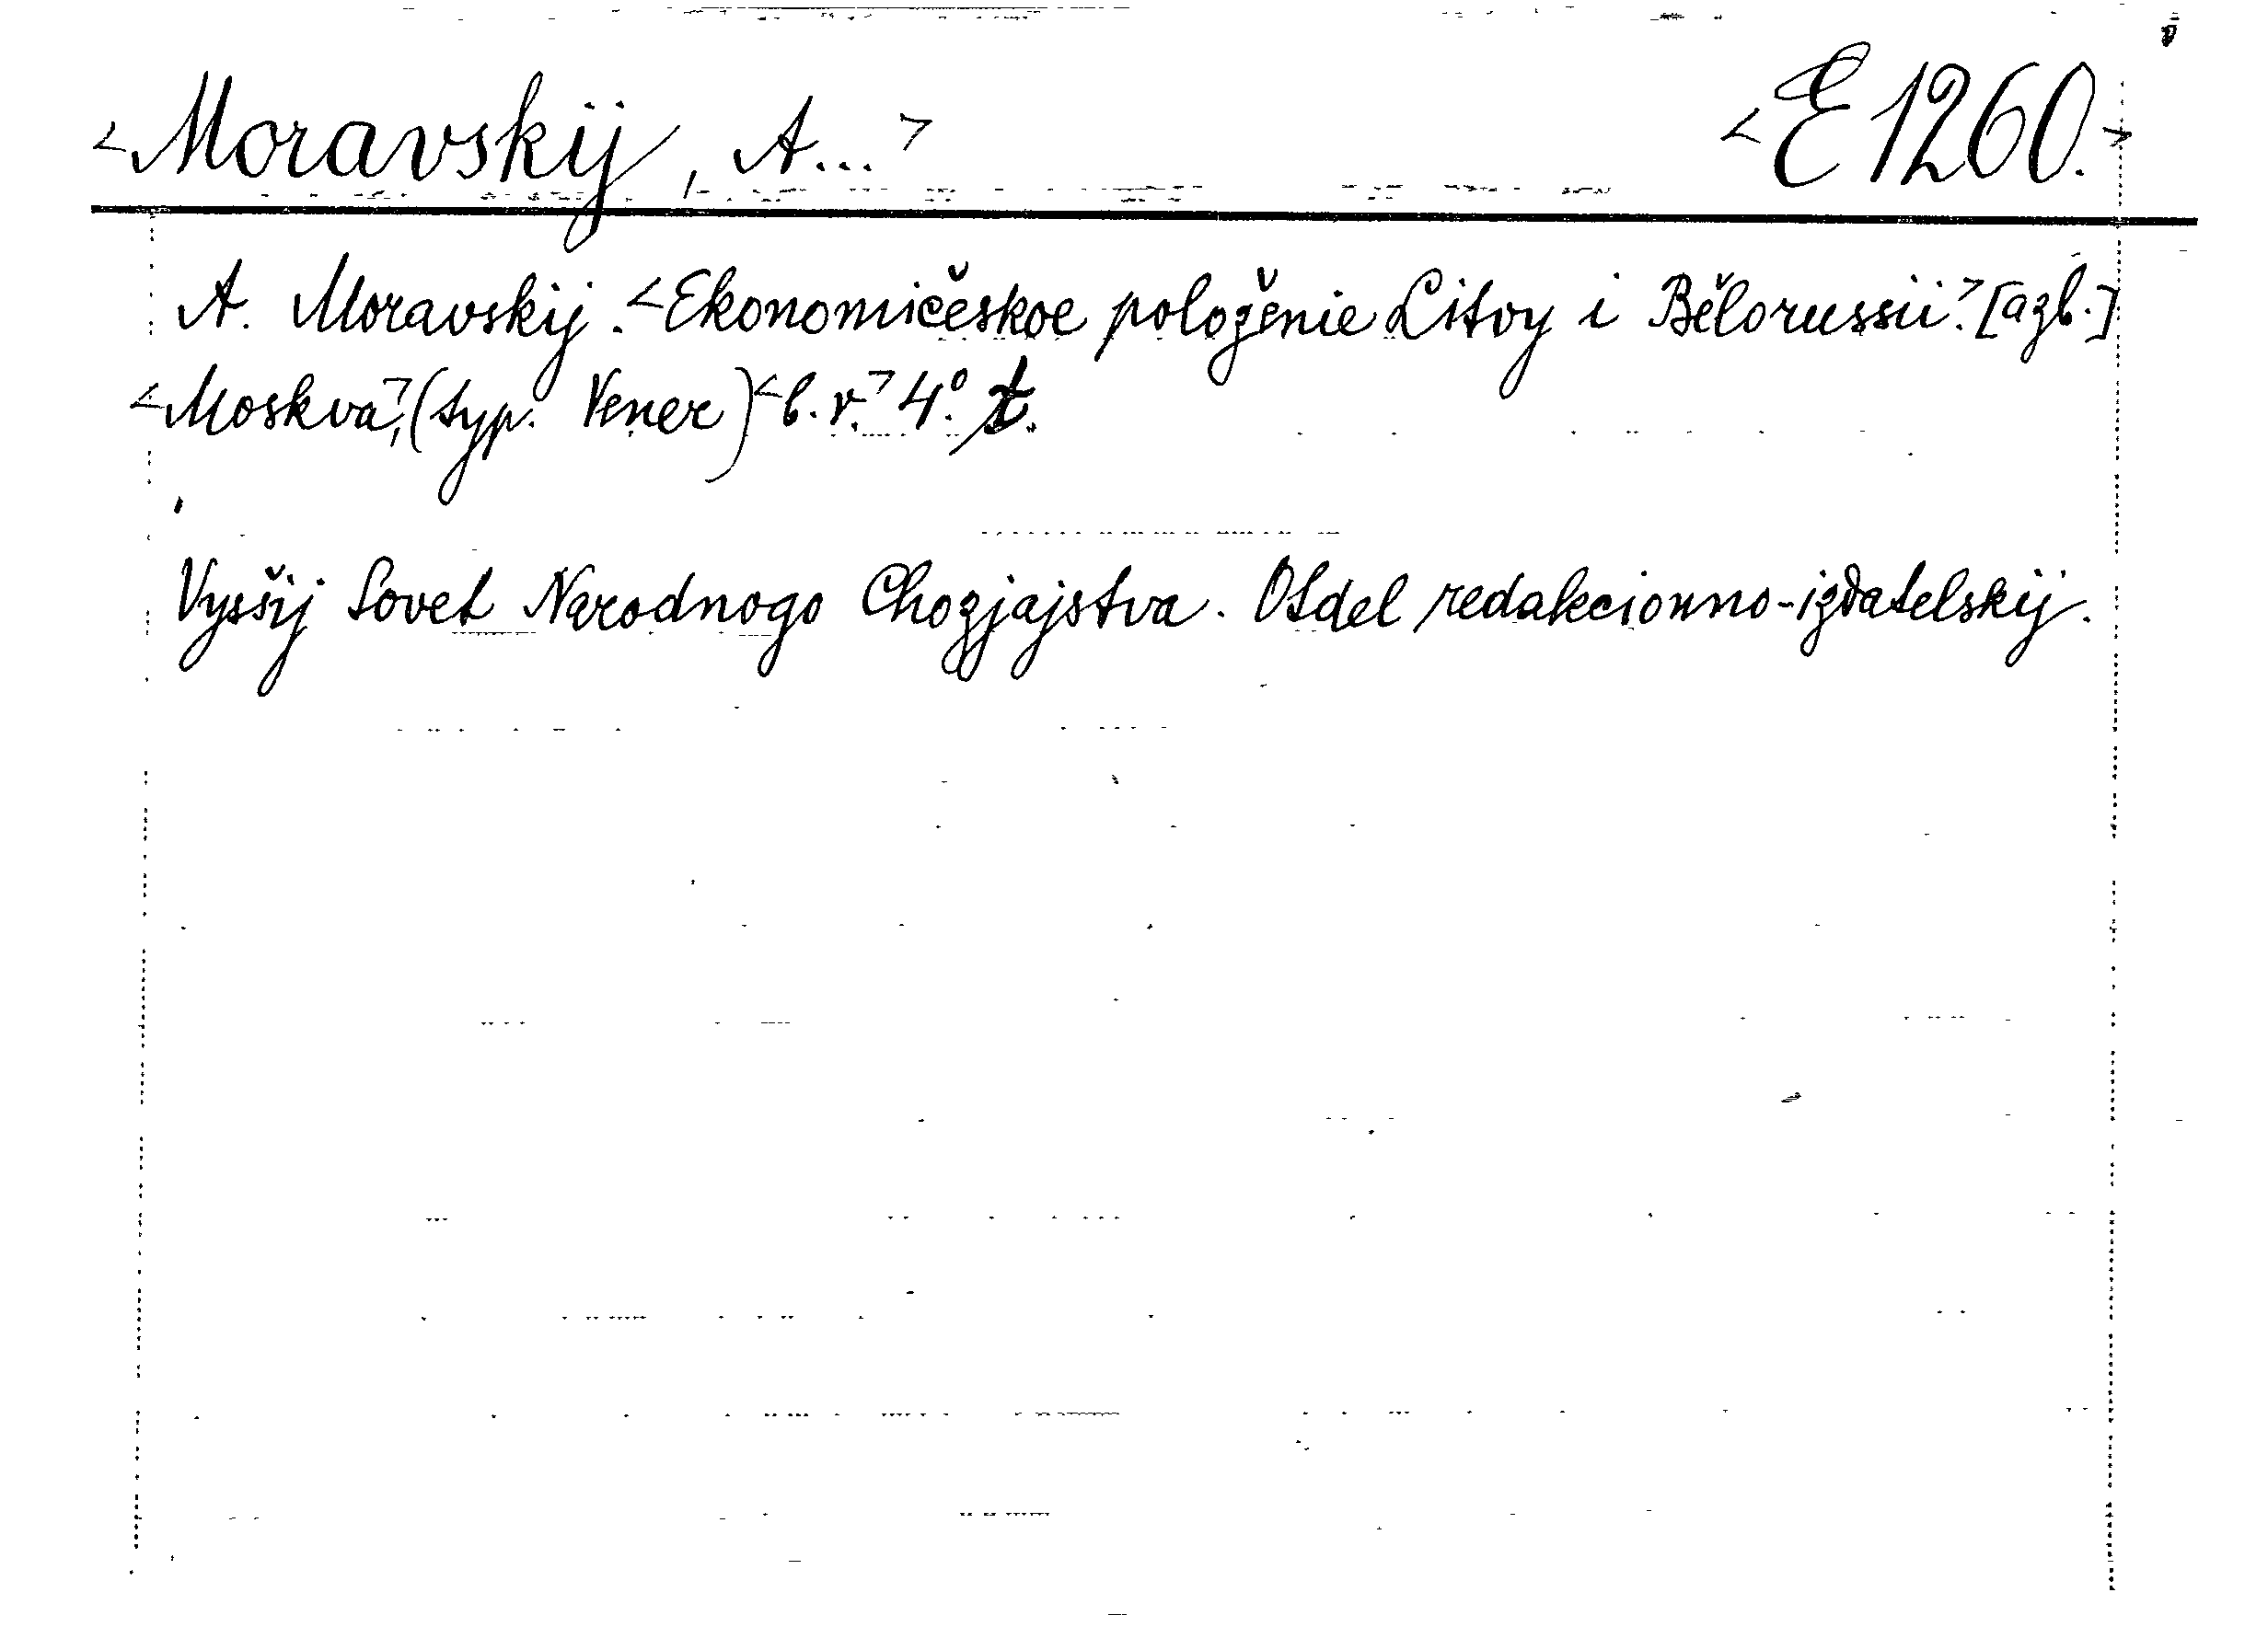 <Moravskij, A...> <E 1260.>
A. Moravskij. <Ekonomičeskoe položenie Litvy i Bělorussii.> [azb.]
<Moskva>, (typ. Vener) <b.r.> 4°. t.
Vysšij Sovet Narodnogo Chozjajstva. Otdel redakcionno-izdatelskij.